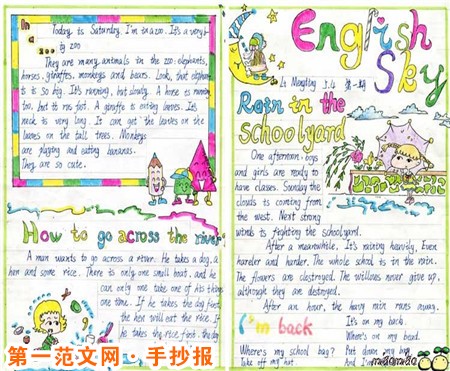 In
a
zoo
Today is Saturday, I'm in a zoo. It's a very
big zoo
They are many animals in the zoo: elephants,
horses, giraffes, monkeys and bears. Look, that elephant
is so big. It's running, but slowly. A horse is running
too, but it's not fat. A giraffe is eating leaves. It's
neck is very long. It can get the leaves on the
leaves on the tall trees. Monkeys
are playing and eating bananas.
They are so cute.
How to go across the river
A man wants to go across a river. He takes a dog, a
hen and some rice. There is only one small boat, and he
can only one take one of his things
one time. If he takes the dog first,
the hen will eat the rice. If
he takes the rice first, the dog
English
Sky
第一期
Rain in the
schoolyard
One afternoon, boys
and girls are ready to
have classes. Sounday the
clouds is coming from
the west. Next strong
winds is fighting the schoolyard.
After a meanwhile, It's raining heavily, Even
harder and harder. The whole school is in the rain.
The flowers are clestroyed. The willows never give up,
although they are destroyed.
After an hour, the heavy rain runs away.
I'm back
It's on my back.
Where's on my head.
Where's my school bag? Put down my bag
Take off my hat. And I'm
miaomiao
第一范文网·手抄报